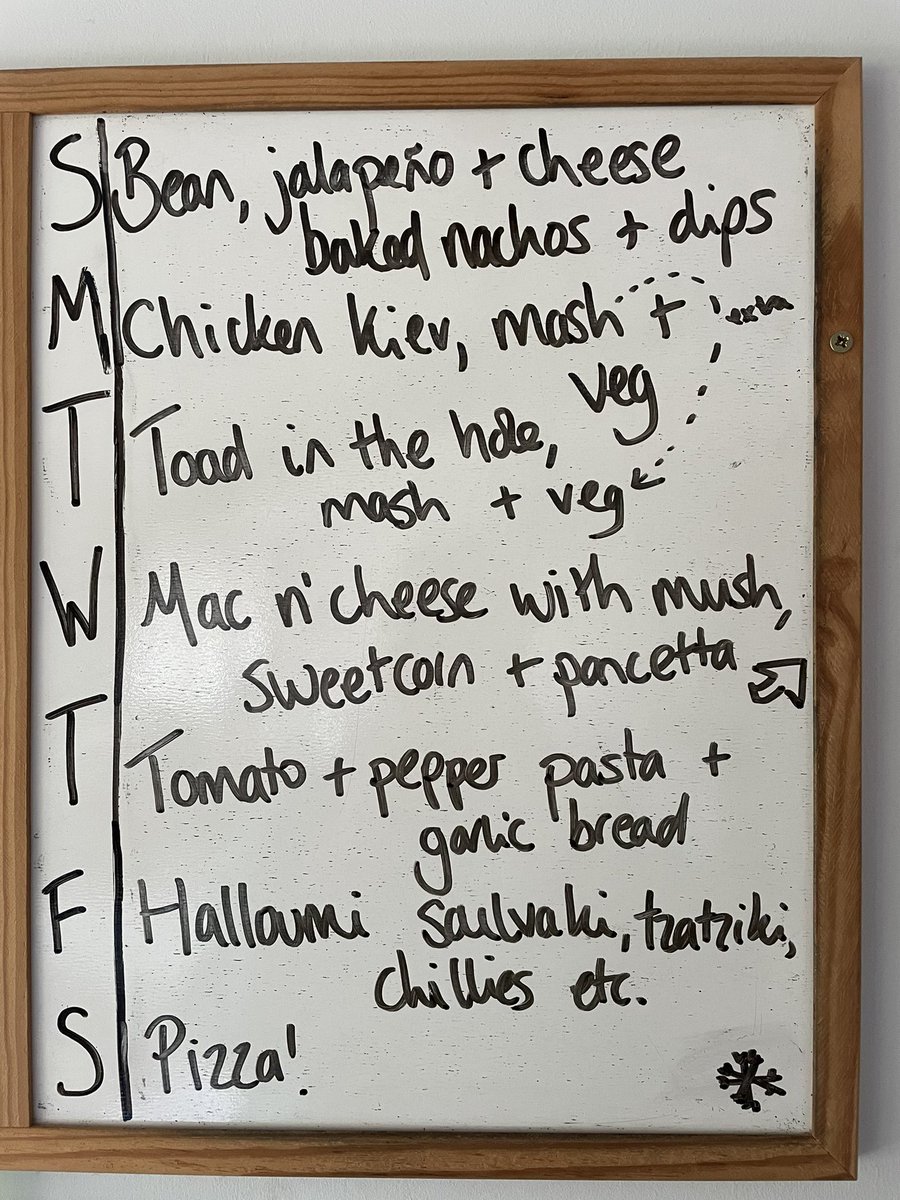 S Bean, jalapeño + cheese
baked nachos + dips
M Chicken kiev, mash +
extra
veg
T Toad in the hole,
mash + veg
W Mac n' cheese with mush,
sweetcorn + pancetta
T Tomato + pepper pasta +
garlic bread
F Halloumi Soulvaki, tzatziki,
chillies etc.
S Pizza!